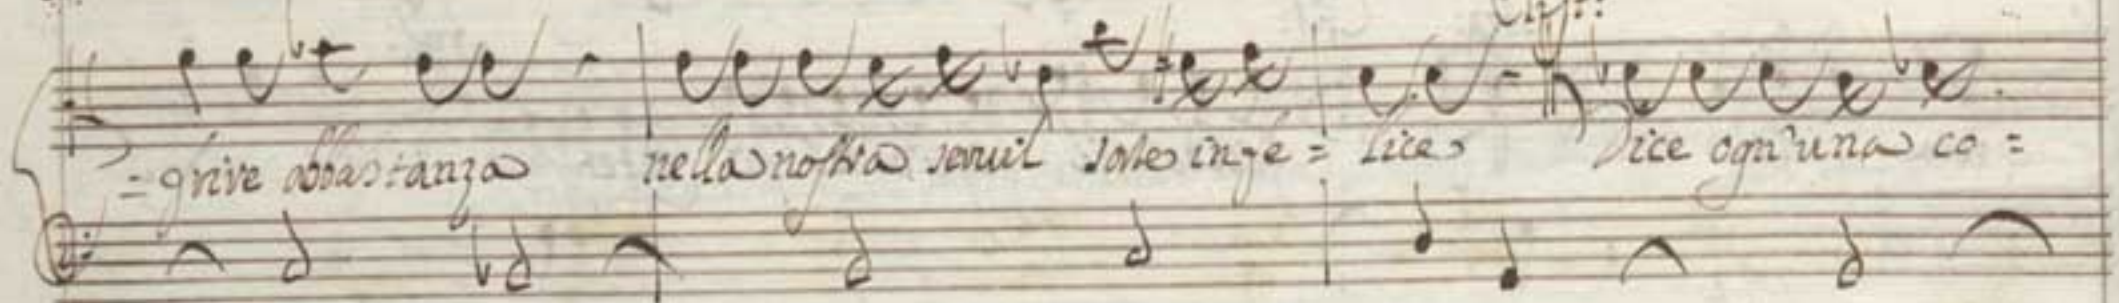 =grire abbastanza nella nostra servil sorte infe= lice Dice ogn'una co=